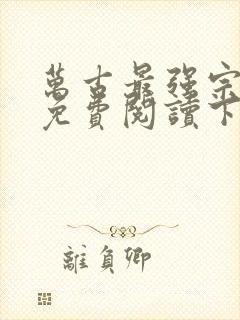 萬古最強宗
免費閱讀下
離負卿